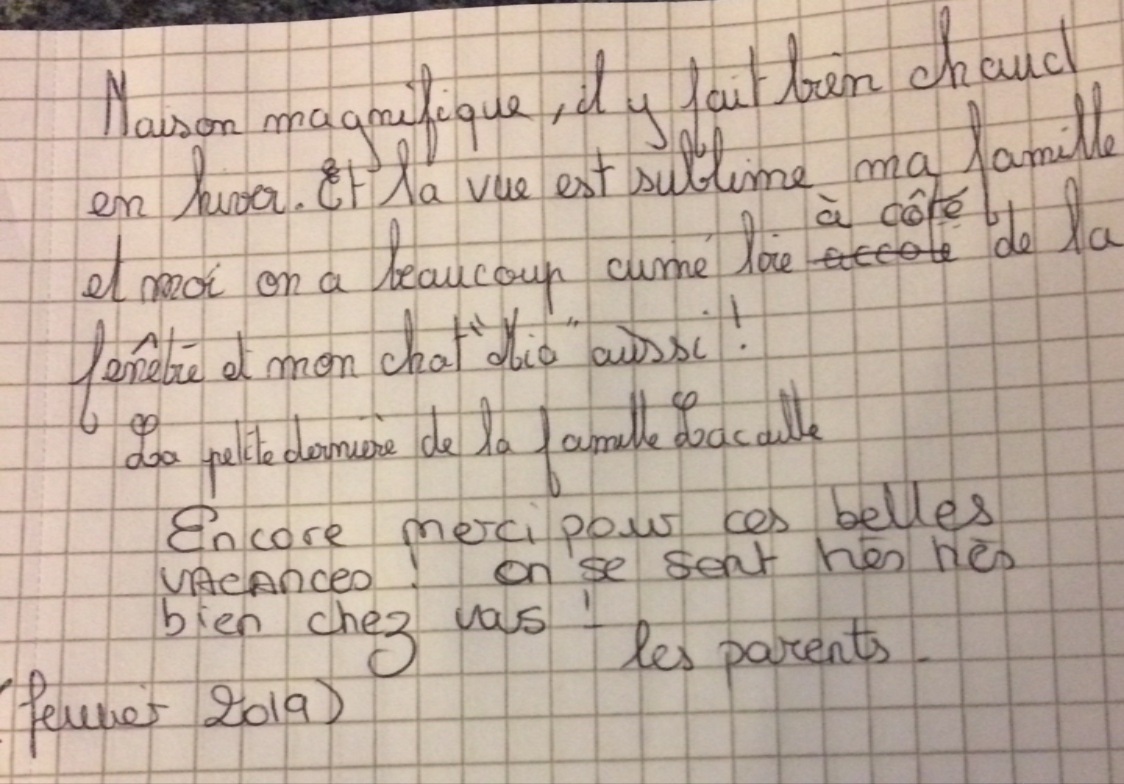 Maison magnifique, il y fait bien chaud
en hiver. Et la vue est sublime ma famille
et moi on a beaucoup aimé lire à côté de la
fenêtre et mon chat " " aussi !
La petite dernière de la famille Lacaille
Encore merci pour ces belles
vacances ! on se sent très très
bien chez vous !
les parents.
(fevrier 2019)